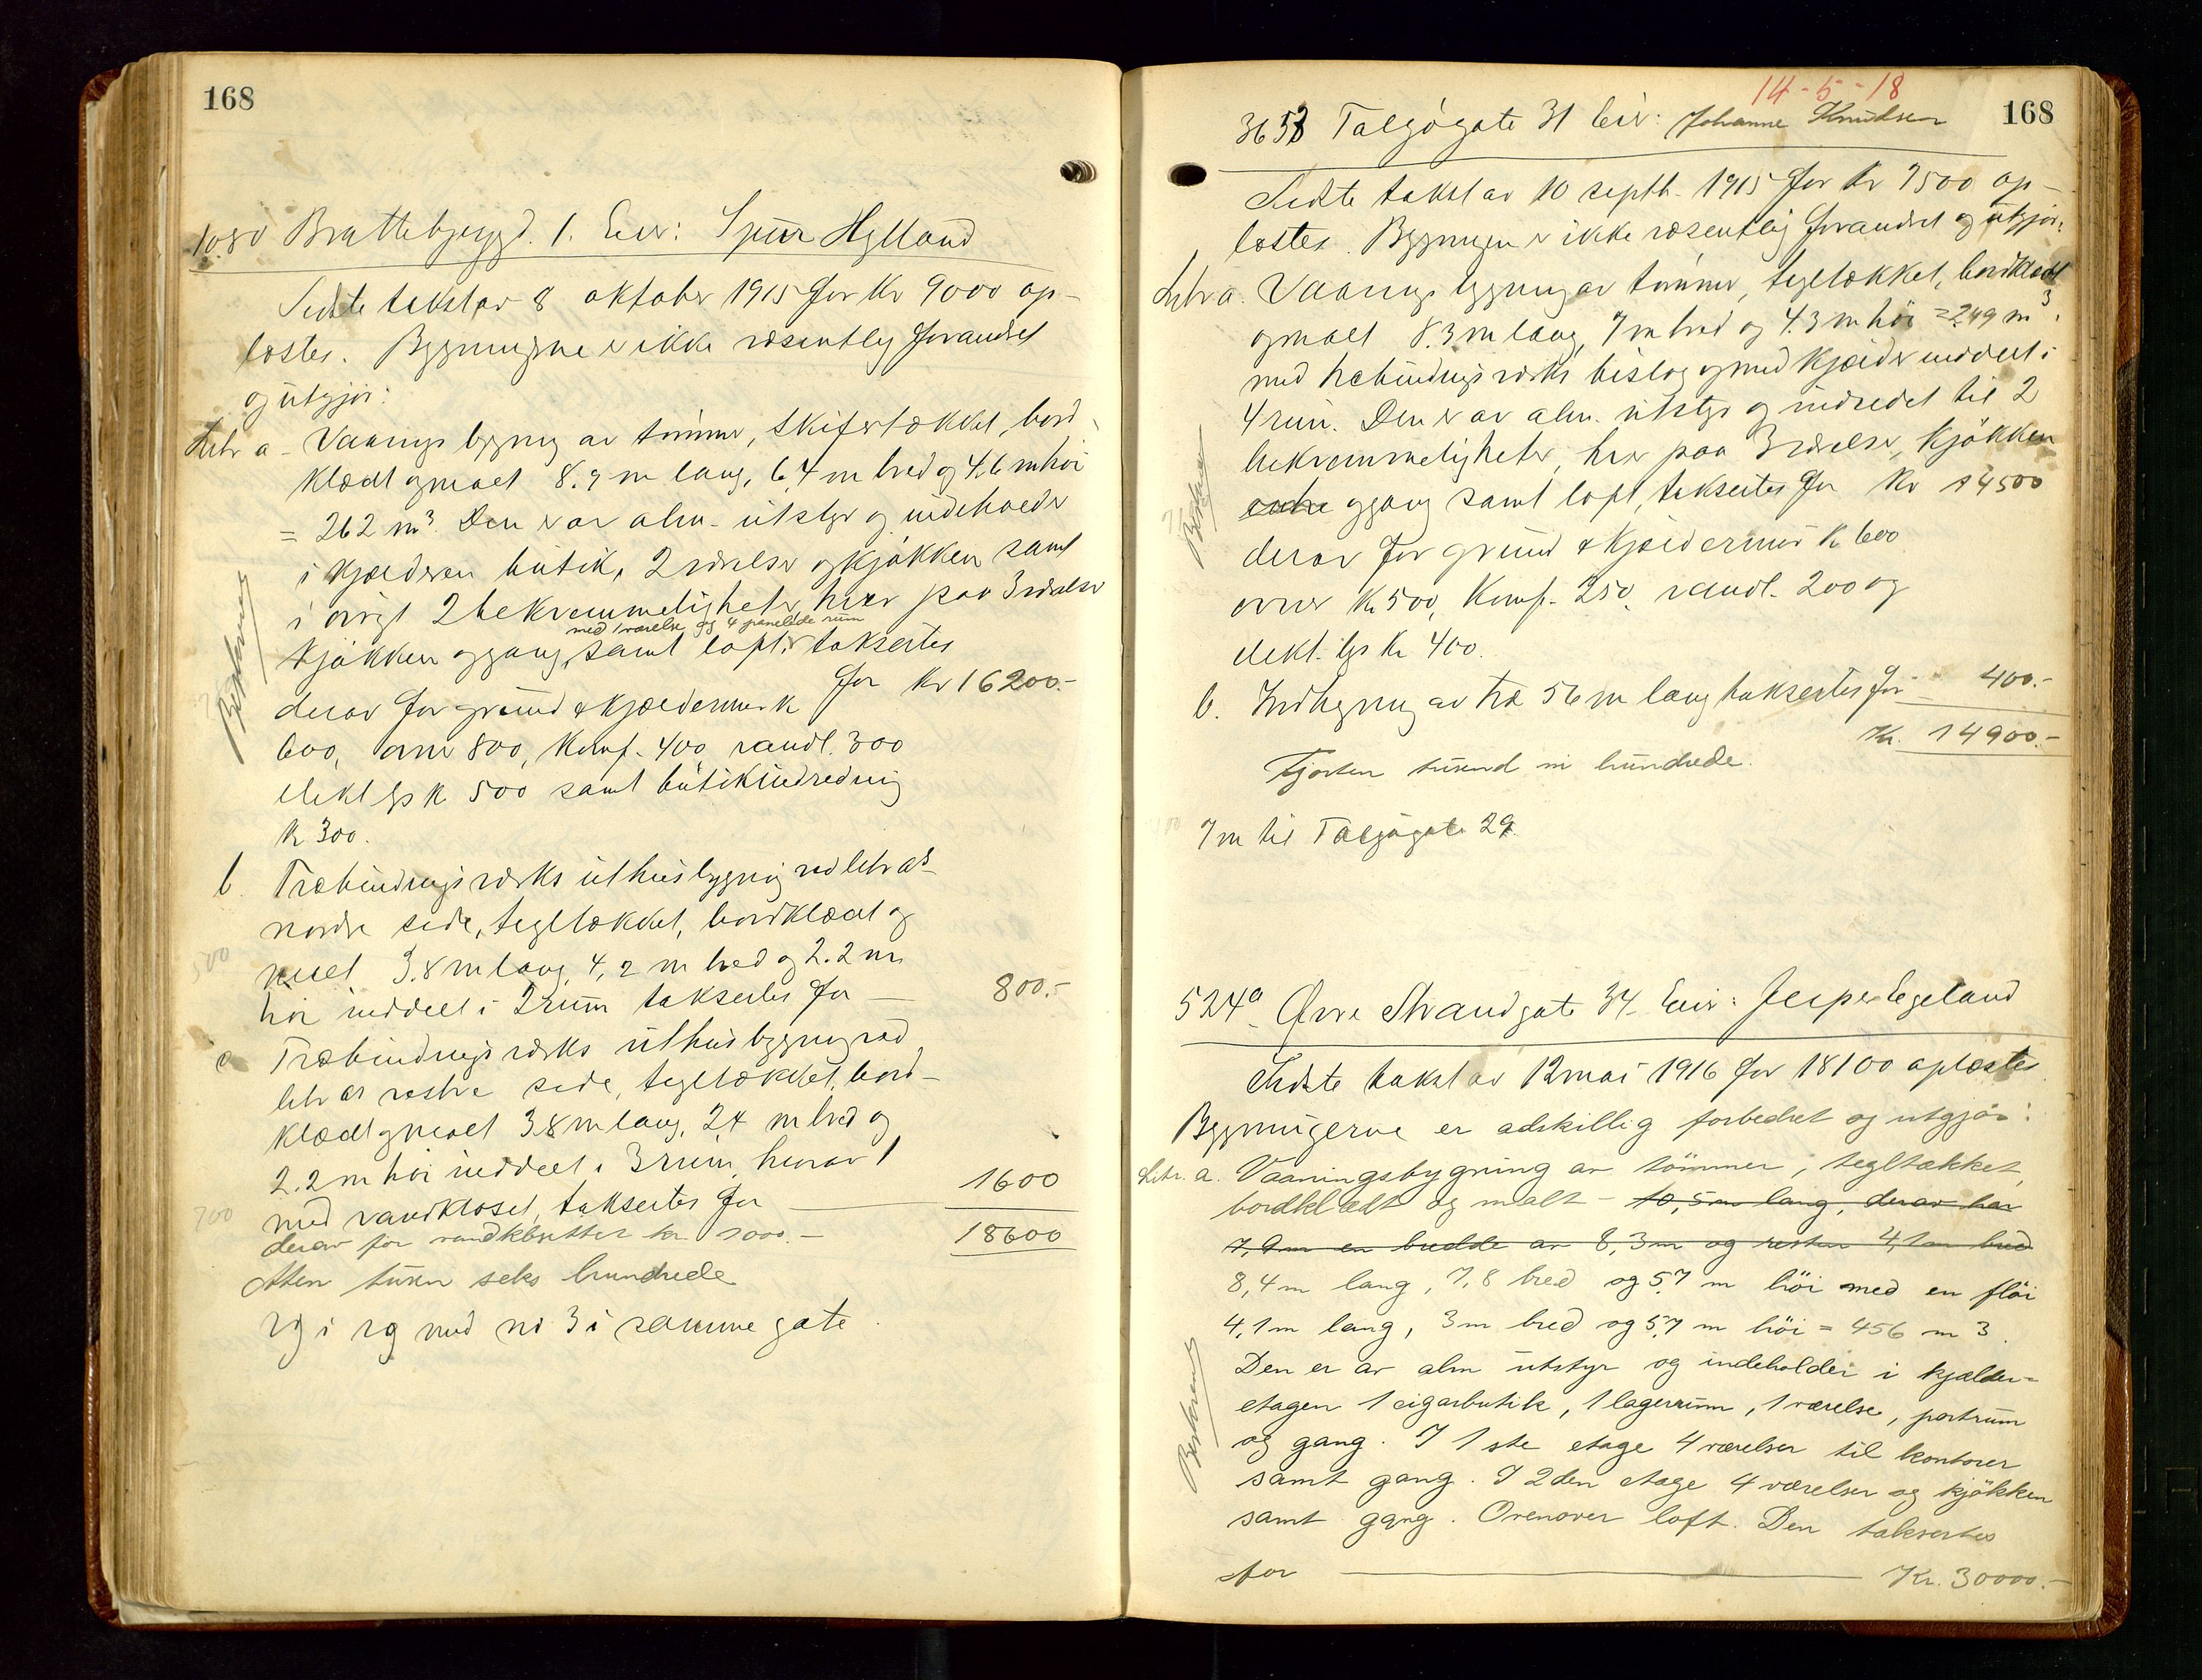 168
1080 Brattebjerggd. 1. Eier: Hylland
Sidste takst av 8 oktober 1915 for Kr 9000 op-
læstes. Bygningene er ikke væsentlig forandret
og utgjør:
Litr a - Vaaningsbygning av tømmer, skifertækket, bord-
klædt og malt 8.9 m lang, 6,4 m bred og 4,6 m høi
= 262 m³. Den er av alm. utstyr og indeholder
i kjælderen butik, 2 værelser og kjøkken samt
i øvrigt 2 bekvemmeligheter, hver paa 3 værelser
med 1 værelse og 4 panelede rum
kjøkken og gang, samt loft, taksertes
for Kr 16200.-
derav for grund & kjældermur k
600, ovner 800, Komf. 400, vandl. 300
elekt lys k 500 samt butikindredning
k 300.
b. Træbindingsværks uthusbygning ved litr as
nordre side, tegltækket, bordklædt og
malt 3.8 m lang, 4,2 m bred og 2.2 m
høi inddelt i 2 rum taksertes for — 800.-
500
c Træbindingsværks uthusbygning ved
litr as vestre side, tegltækket, bord-
klædt og malt 3.8 m lang, 2,4 m bred og
2.2 m høi inddelt i 3 rum, hvorav 1
med vandkloset, taksertes for — 1600
700
derav for vandklosetter kr. 1000.- 18600
Atten tusen seks hundrede
rg i rg med no 3 i samme gate.
14-5-18
168
3653 Talgøgate 31 Eier: Johanne Knudsen
Sidste takst av 10 septb. 1915 for kr 7500 op-
læstes. Bygningen er ikke væsentlig forandret og utgjør:
Litr a. Vaaningsbygning av tømmer, tegltækket, bordklædt
og malt 8.3 m lang, 7 m bred og 4.3 m høi = 249 m³.
med træbindingsværks bislag og med kjælder inddelt i
4 rum. Den er av alm. utstyr og indredet til 2
bekvemmeligheter, hver paa 3 værelser, kjøkken
og gang samt loft, taksertes for Kr 14500
derav for grund & kjældermur k 600
ovner Kr 500, Komf. 250, vandl. 200 og
elekt. lys kr 400.
b. Indhegning av træ 56 m lang taksertes for 400.-
Kr. 14900.-
Fjorten tusend ni hundrede.
7 m til Talgøgate 29.
524a Øvre Strandgate 34 Eier: Jesper Egeland
Sidste takst av 12 mai 1916 for 18100 oplæstes
Bygningerne er adskillig forbedret og utgjør:
Litr. a. Vaaningsbygning av tömmer, tegltækket,
bordklædt og malt - 10,5 m lang, derav har
7,9 m en bredde av 8,3 m og resten 4,1 m bred
8,4 m lang, 7,8 bred og 5,7 m höi med en flöi
4,1 m lang, 3 m bred og 5,7 m höi = 456 m 3.
Den er av alm utstyr og indeholder i kjælder=
etagen 1 cigarbutik, 1 lagerrum, 1 værelse, portrum
og gang. I 1ste etage 4 værelser til kontorer
samt gang. I 2den etage 4 værelser og kjökken
samt gang. Ovenover loft. Den taksertes
for — Kr. 30000.-